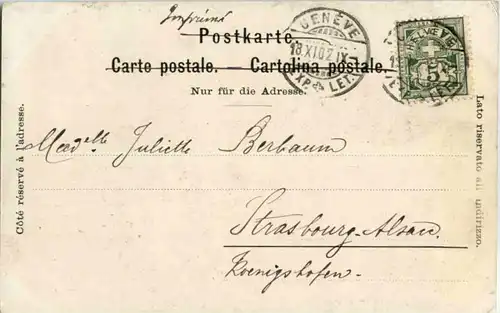 Imprimé
Postkarte.
Carte postale. — Cartolina postale.
Nur für die Adresse.
GENÈVE
18.XI.02.IX
EXP. LET.
HELVETIA
5
Côté réservé à l'adresse.
Lato riservato all' indirizzo.
Mademelle Juliette Berbaum
Strasbourg-Alsace.
Koenigshofen.